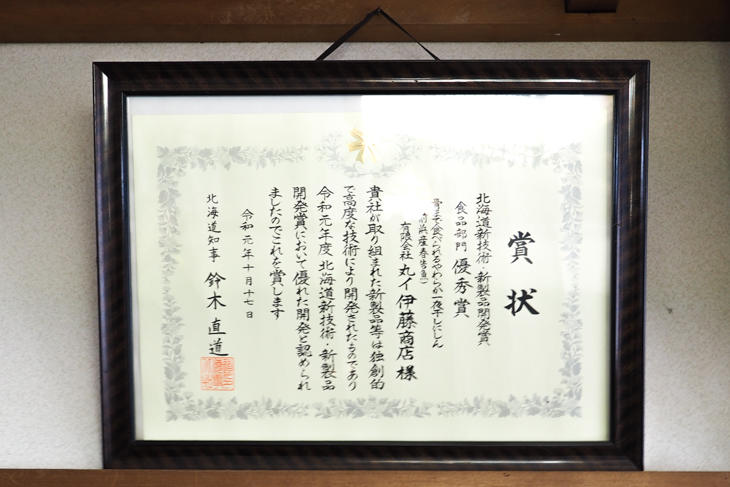 賞状
北海道新技術・新製品開発賞
食品部門 優秀賞
骨まで食べられるやわらか一夜干しにしん
(前浜産春告魚)
有限会社 丸イ伊藤商店 様
貴社が取り組まれた新製品等は独創的
で高度な技術により開発されたものであり
令和元年度 北海道新技術・新製品
開発賞において優れた開発と認められ
ましたのでこれを賞します
令和元年十月十七日
北海道知事 鈴木直道